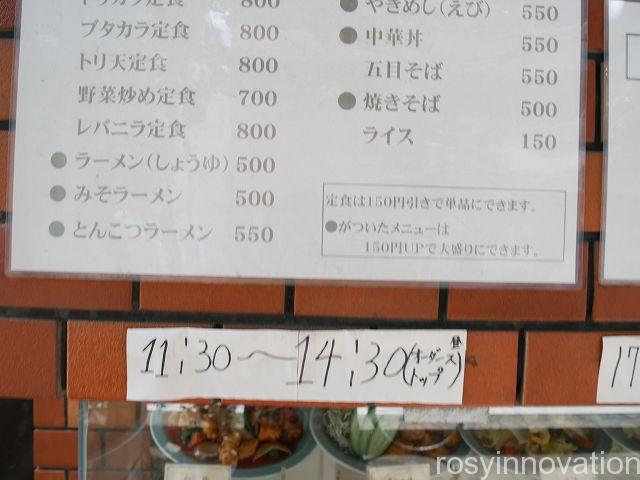 トリカラ定食 800
ブタカラ定食 800
トリ天定食 800
野菜炒め定食 700
レバニラ定食 800
●ラーメン(しょうゆ) 500
●みそラーメン 500
●とんこつラーメン 550
●やきめし(えび) 550
●中華丼 550
五目そば 550
●焼きそば 500
ライス 150
定食は150円引きで単品にできます。
●がついたメニューは
150円UPで大盛りにできます。
11:30～14:30(オーダーストップ)
昼
17
rosyinnovation